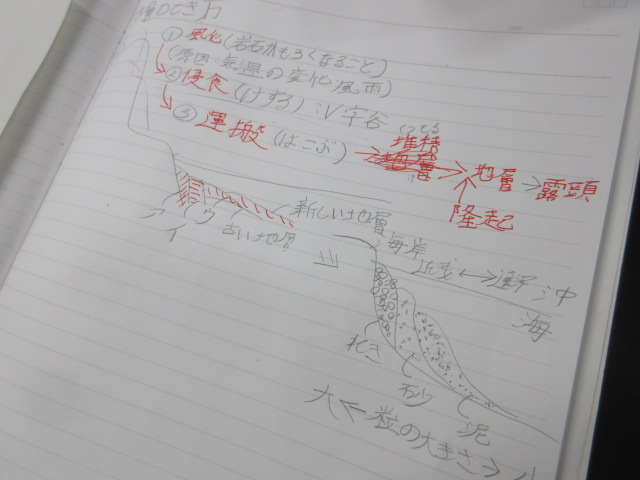 層のでき方
① 風化(岩石がもろくなること)
(原因:気温の変化、風雨)
② 侵食(けずる):V字谷
③ 運搬(はこぶ)→堆積→地層→露頭
隆起
新しい地層
ア イ ウ 古い地層
海岸
近浅⟷遠深 沖
海
れき
砂
泥
大←粒の大きさ→小